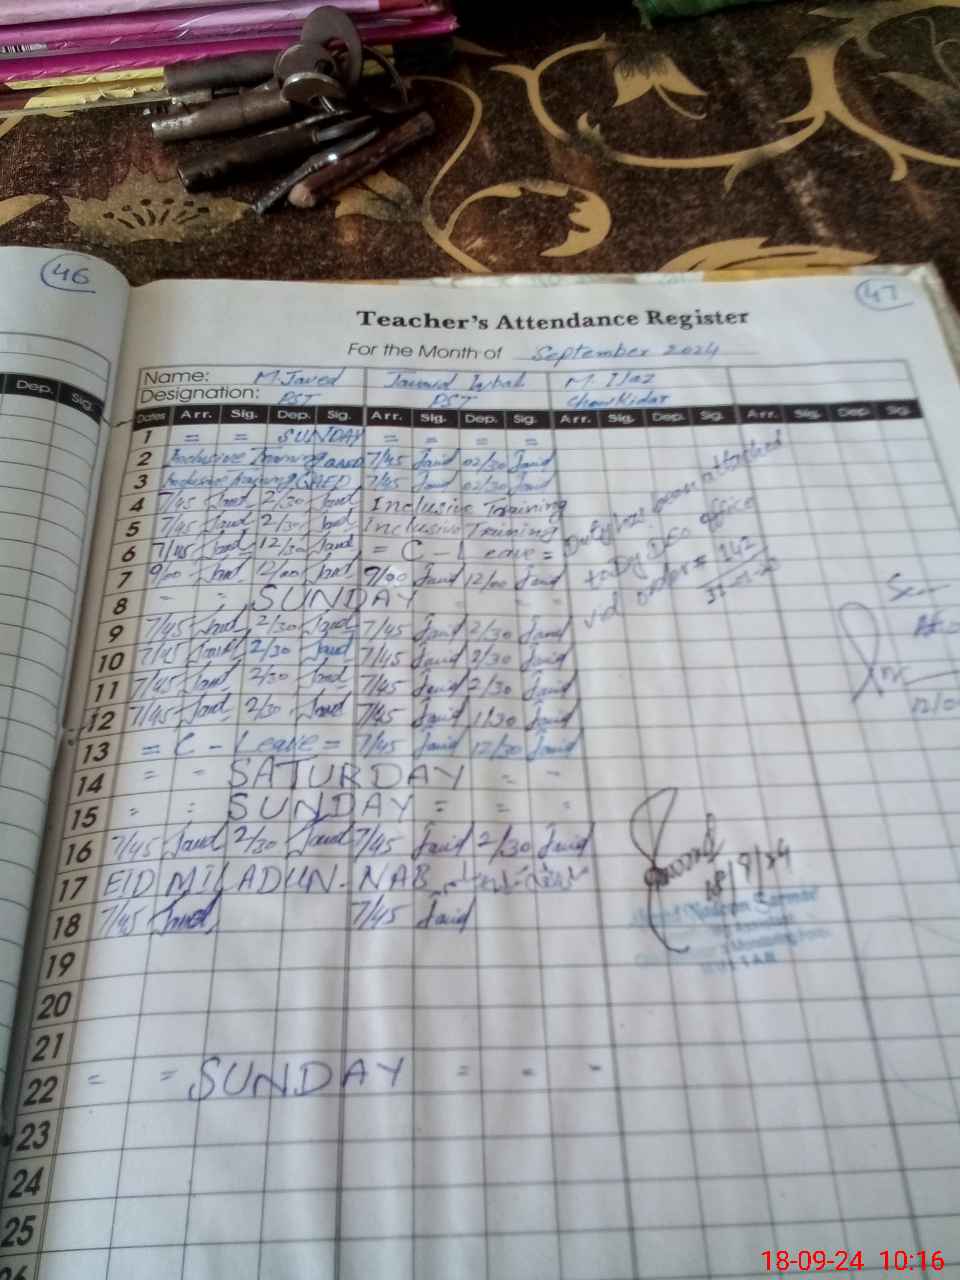 46
47
Teacher's Attendance Register
For the Month of September 2024
Name: M. Javed Javaid Iqbal M. Ijaz
Designation: PST PST Chowkidar
Dep. Sig.
Dates Arr. Sig. Dep. Sig. Arr. Sig. Dep. Sig. Arr. Sig. Dep. Sig. Arr. Sig. Dep. Sig.
1 = = SUNDAY = = = =
2 Inclusive Training QAED 7/45 Javid 02/30 Javid
3 Inclusive Training QAED 7/45 Javid 02/30 Javid
4 7/45 Javed 2/30 Javed Inclusive Training
5 7/45 Javed 2/30 Javed Inclusive Training
6 7/45 Javed 12/30 Javed = C - Leave =
7 9/00 Javed 12/00 Javed 9/00 Javid 12/00 Javid
Duty has been attached
to Dy DEO office
vid order # 142
8 - = SUNDAY - - -
9 7/45 Javed 2/30 Javed 7/45 Javid 2/30 Javid
10 7/45 Javed 2/30 Javed 7/45 Javid 2/30 Javid
11 7/45 Javed 2/30 Javed 7/45 Javid 2/30 Javid
12 7/45 Javed 2/30 Javed 7/45 Javid 1/30 Javid
13 = C - Leave = 7/45 Javid 12/30 Javid
14 = - SATURDAY = -
15 = = SUNDAY = = =
16 7/45 Javed 2/30 Javed 7/45 Javid 2/30 Javid
17 EID MILADUN-NAB
18 7/45 Javed 7/45 Javid
18/9/24
19
20
21
22 = = SUNDAY = - -
23
24
25
26
18-09-24 10:16